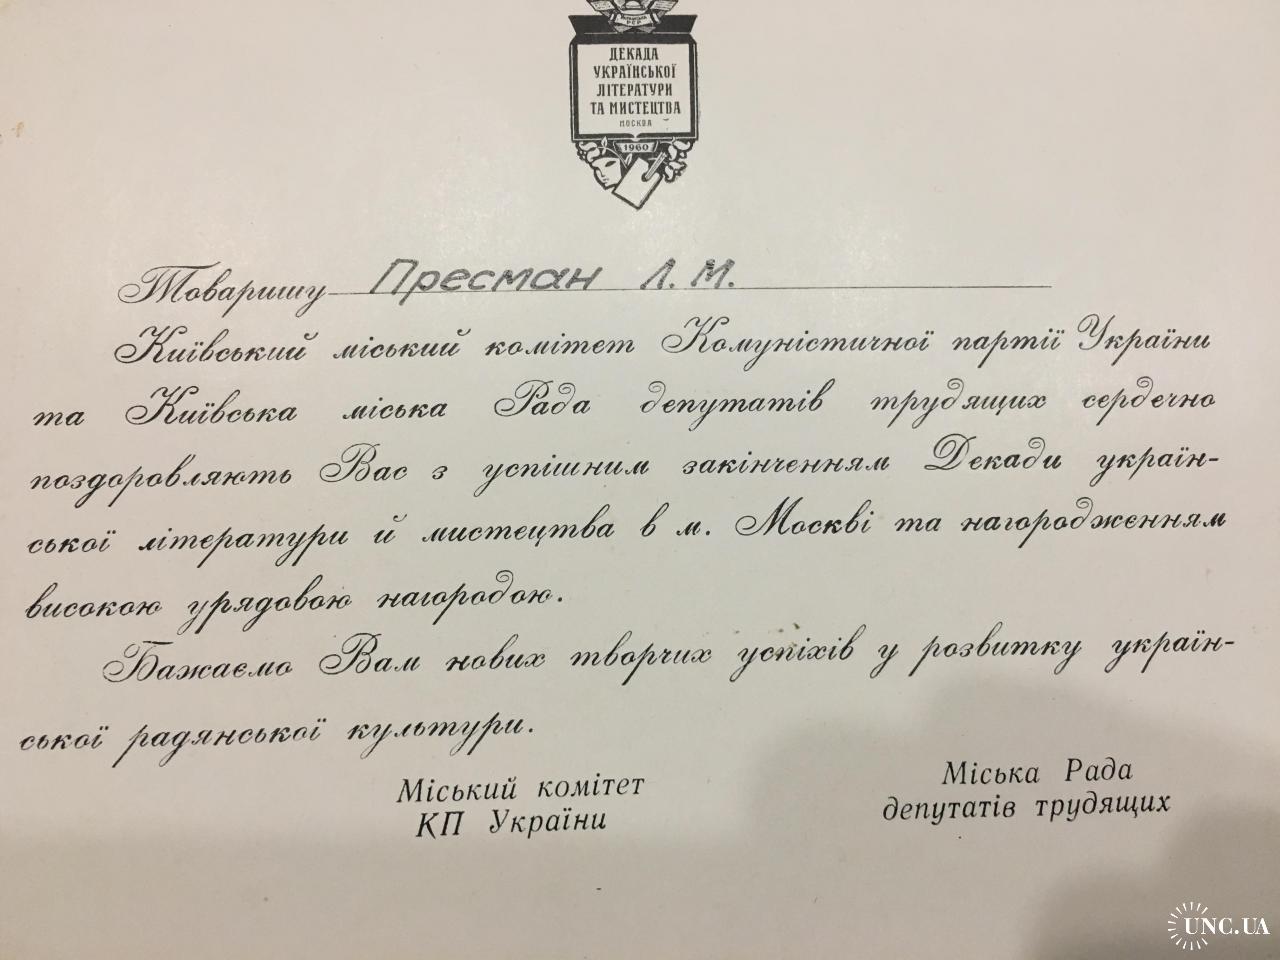 Українська
РСР
ДЕКАДА
УКРАЇНСЬКОЇ
ЛІТЕРАТУРИ
ТА МИСТЕЦТВА
МОСКВА
1960
Товаришу Пресман Л. М.
Київський міський комітет Комуністичної партії України
та Київська міська Рада депутатів трудящих сердечно
поздоровляють Вас з успішним закінченням Декади україн-
ської літератури й мистецтва в м. Москві та нагородженням
високою урядовою нагородою.
Бажаємо Вам нових творчих успіхів у розвитку україн-
ської радянської культури.
Міський комітет
КП України
Міська Рада
депутатів трудящих
UNC.UA